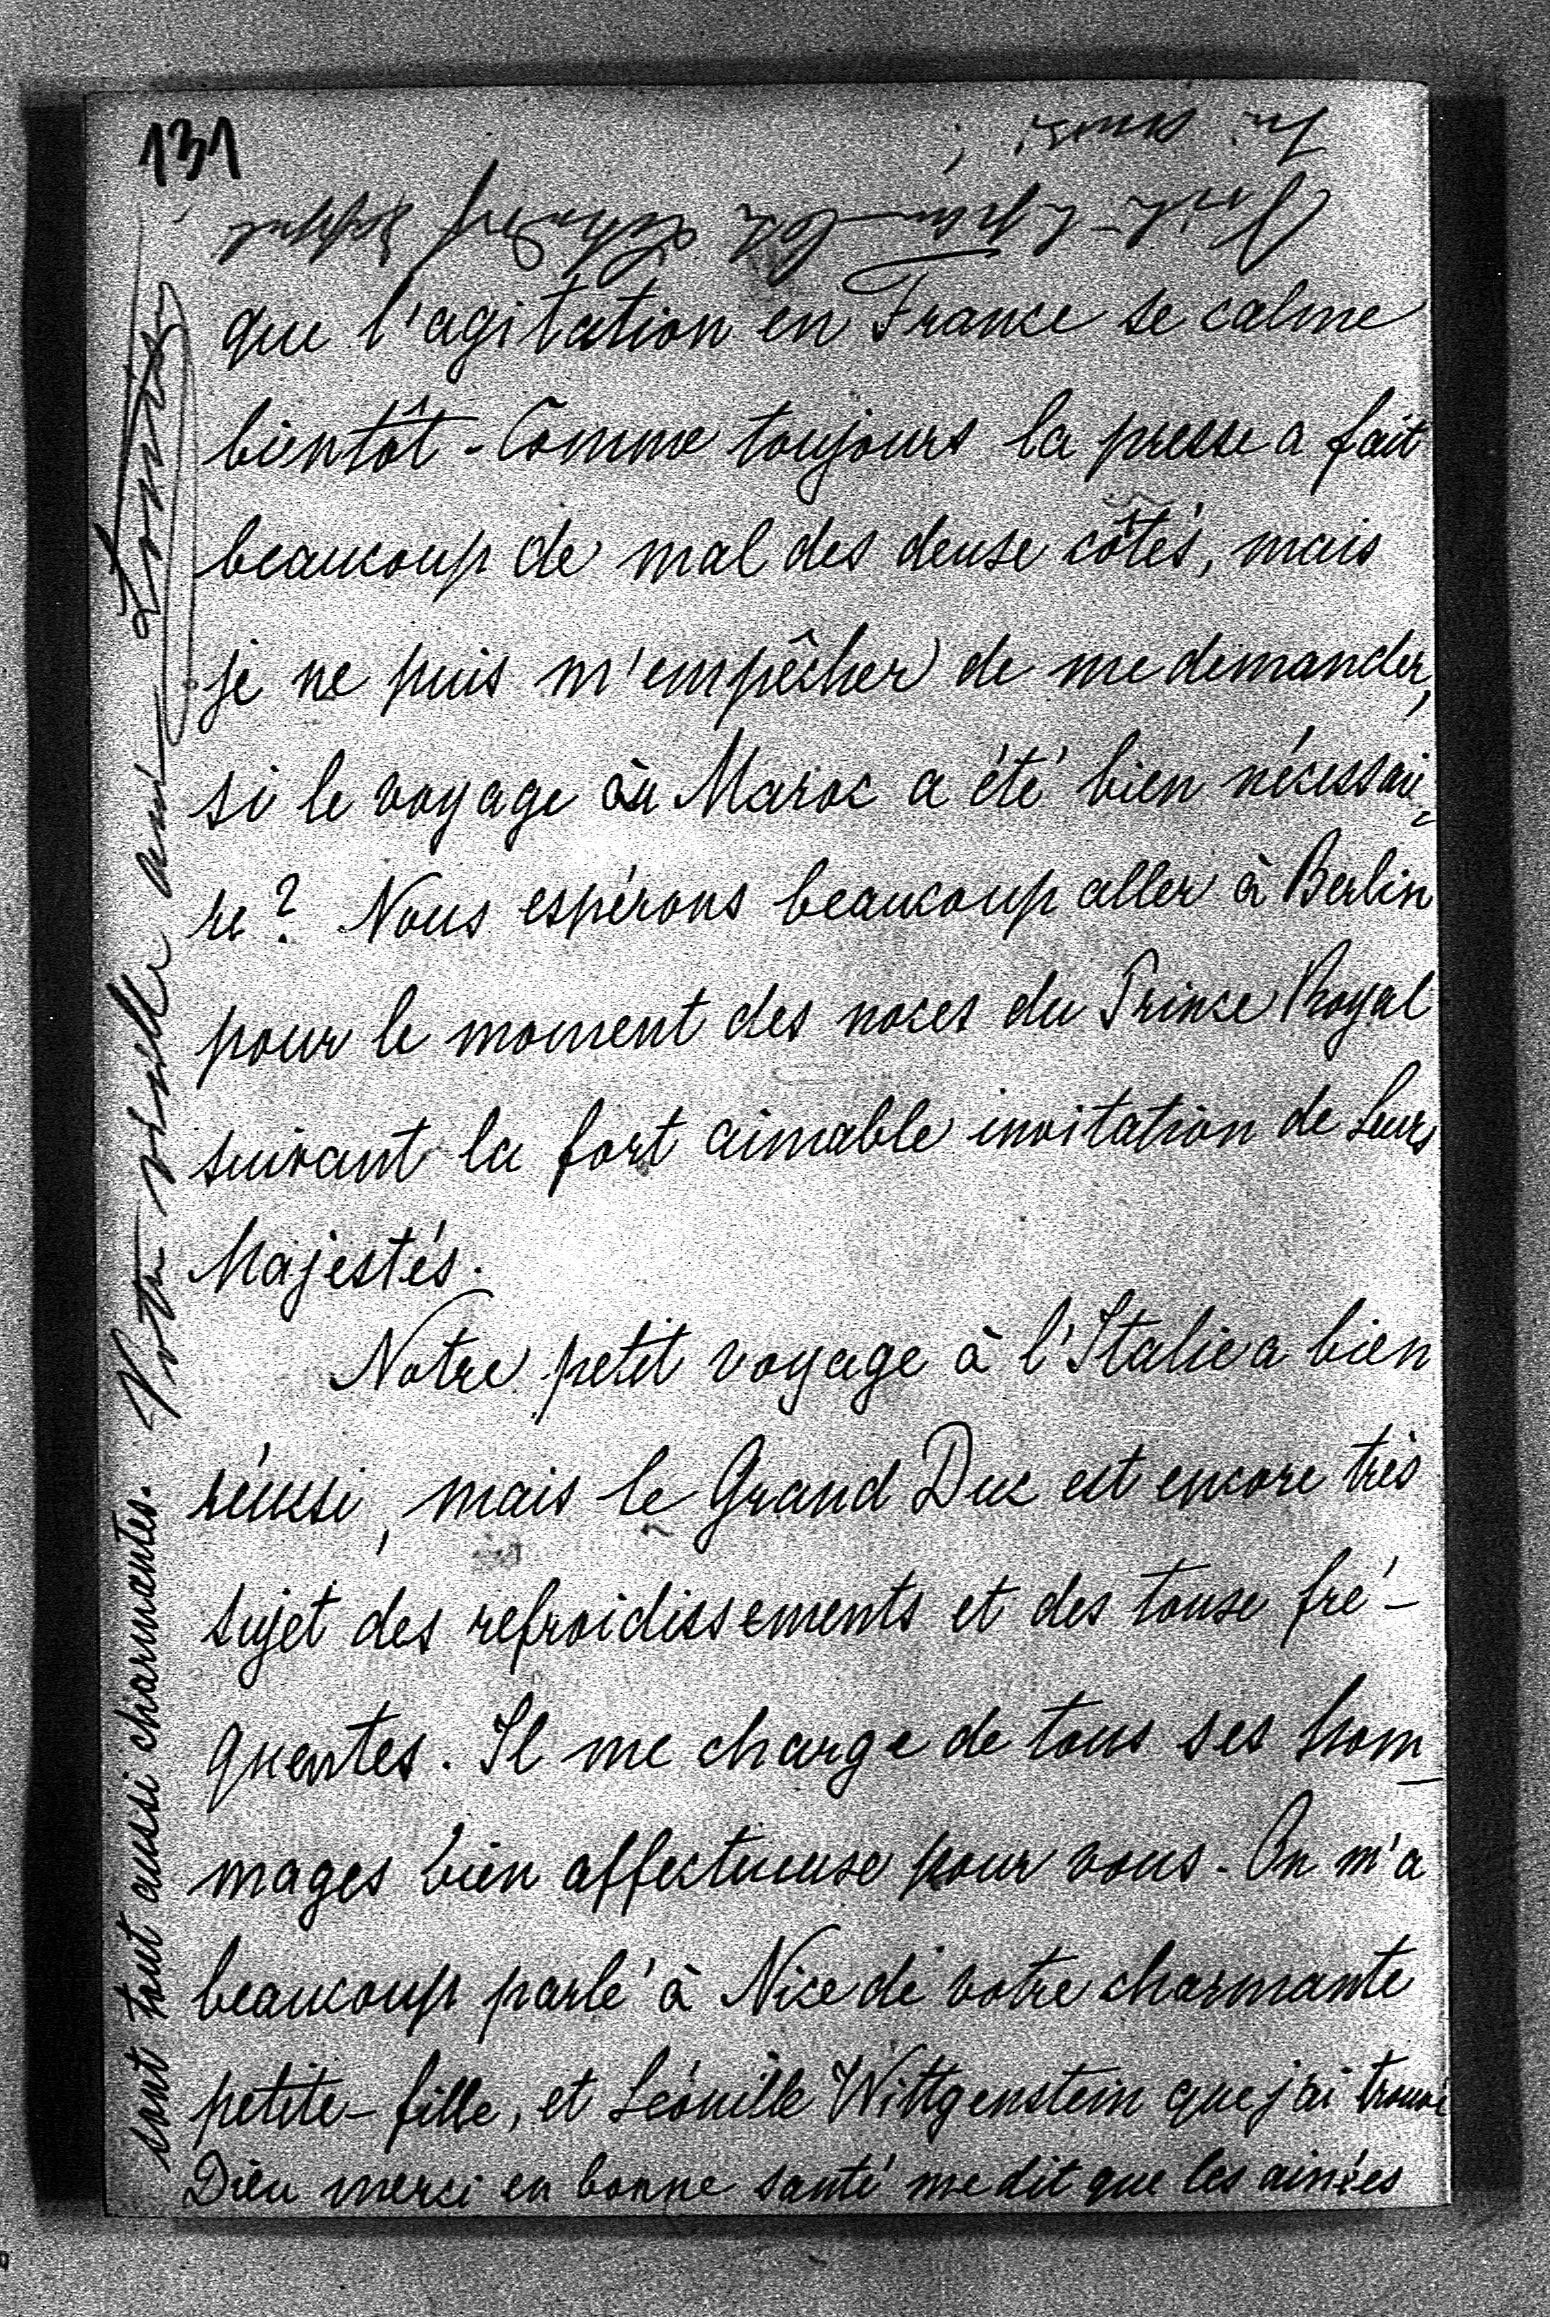 131
que l'agitation en France se calme
bientôt. Comme toujours la presse a fait
beaucoup de mal des deuse côtés, mais
je ne puis m'empêcher de me demander,
si le voyage au Maroc a été bien nécessai=
re? Nous espérons beaucoup aller à Berlin
pour le moment des noces du Prince Royal
suivant la fort aimable invitation de Leurs
Majestés.
Notre petit voyage à l'Italie a bien
réussi, mais le Grand Duc est encore très
sujet des refroidissements et des touse fré-
quentes. Il me charge de tous ses hom-
mages bien affectueuse pour vous. On m'a
beaucoup parlé à Nice de votre charmante
petite-fille, et Léonille Wittgenstein que j'ai trouvé
Dieu merci en bonne santé me dit que les ainées
sont tout aussi charmantes. Votre vieille amie